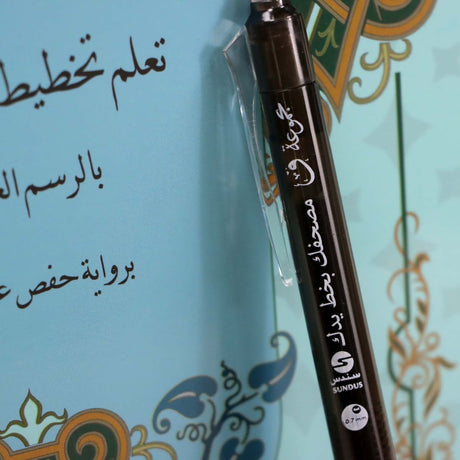 تعلم تخطيط
بالرسم
برواية حفص
مجموعة
مصحفك بخط يدك
سندس
SUNDUS
0.7 mm